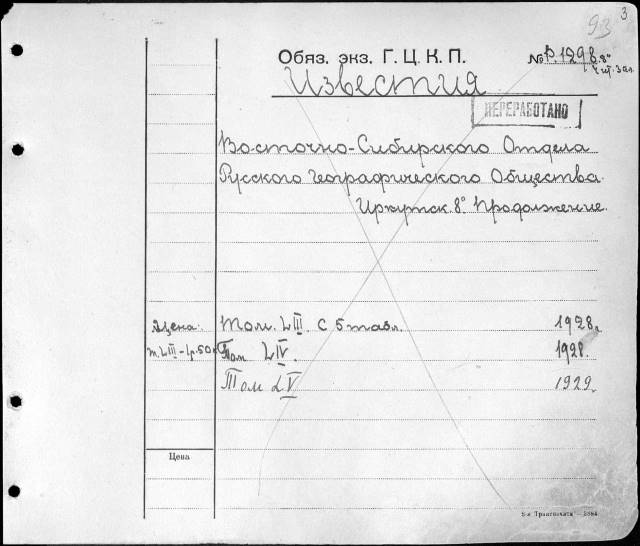 93 3
Обяз. экз. Г.Ц.К.П. № Р.1298 8°
Чит. зал.
Известия
ПЕРЕРАБОТАНО
Восточно-Сибирского Отдела
Русского Географического Общества.
Иркутск. 8° Продолжение.
Цена: Том. LIII. С 5 табл. 1928 г.
т. LIII - 1р. 50 к. Том LIV. 1928.
Том LV 1929.
Цена